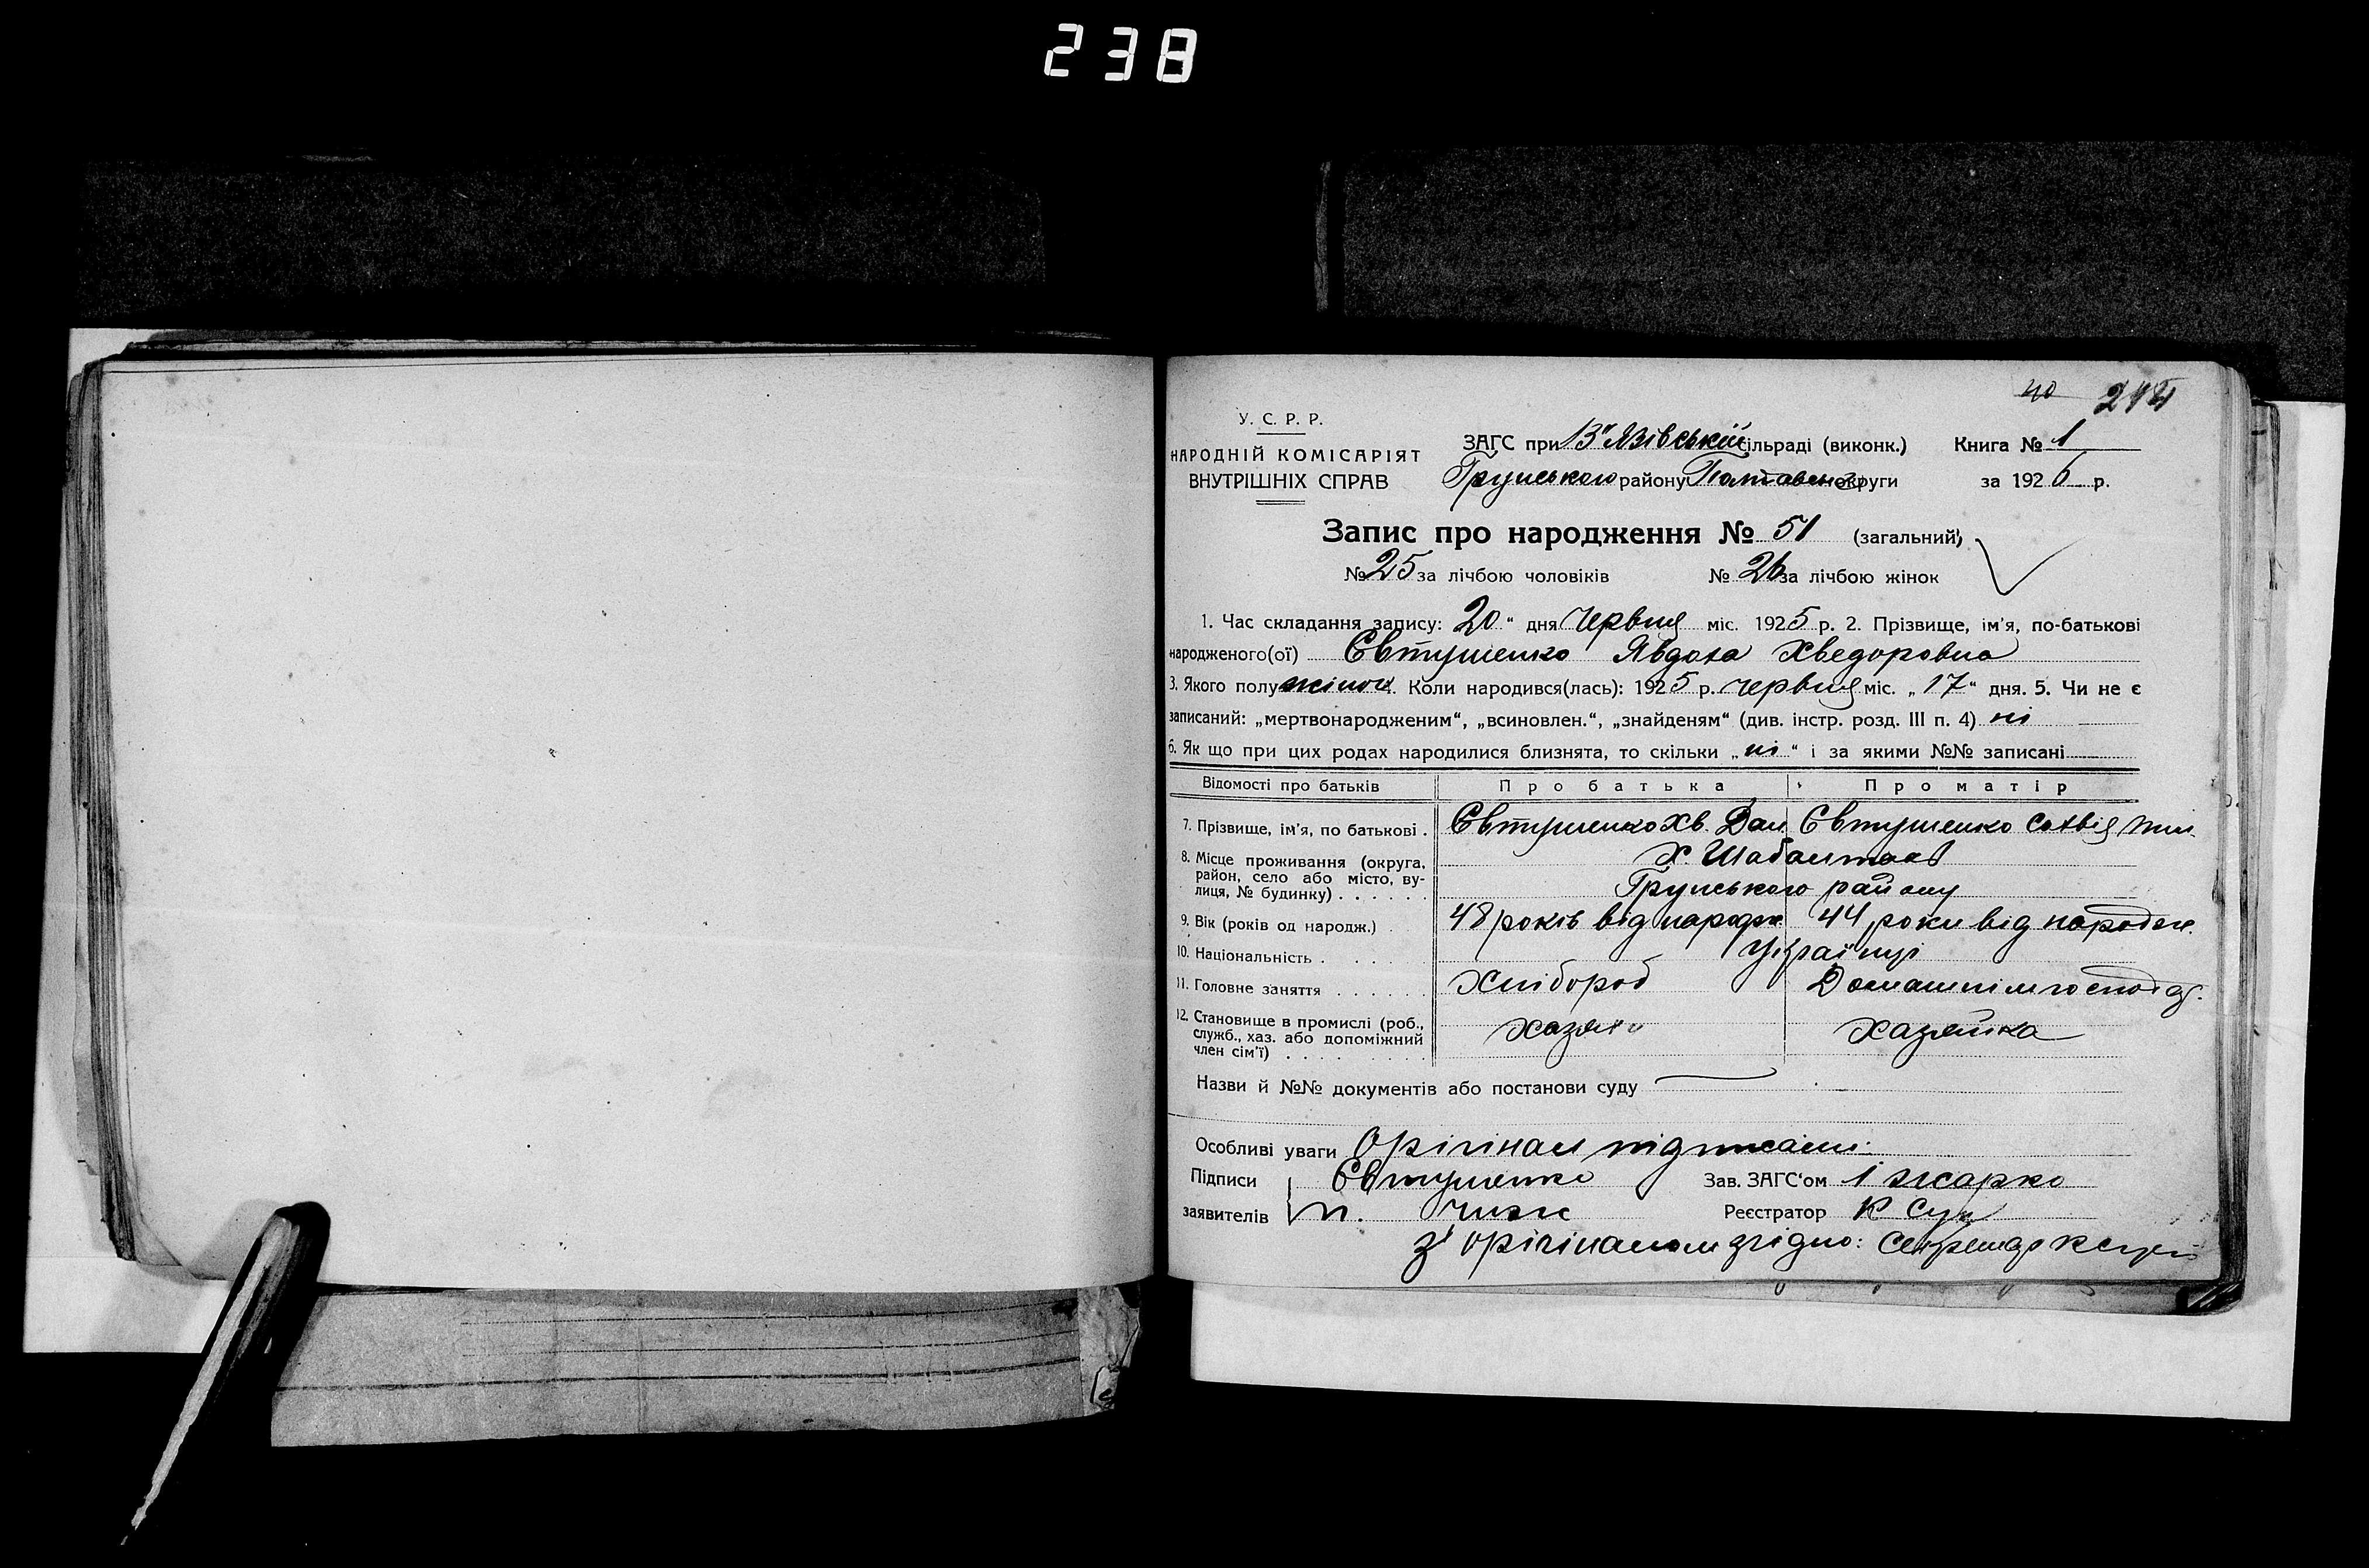 238
У. С. Р. Р.
НАРОДНІЙ КОМІСАРІЯТ
ВНУТРІШНІХ СПРАВ
ЗАГС при В'язівській сільраді (виконк.) Книга № 1
Грунського району Полтавської округи за 1926 р.
Запис про народження № 51 (загальний)
№ 25 за лічбою чоловіків № 26 за лічбою жінок
1. Час складання запису: 20 " дня Червня міс. 1925 р. 2. Прізвище, ім'я, по-батькові
народженого(ої) Євтушенко Явдоха Хведоровна
3. Якого полу жіноч. Коли народився(лась): 1925 р. червня міс. „ 17 " дня. 5. Чи не є
записаний: „мертвонародженим", „всиновлен.", „знайденям" (див. інстр. розд. III п. 4) ні
6. Як що при цих родах народилися близнята, то скільки „ ні " і за якими №№ записані
Відомості про батьків Про батька Про матір
7. Прізвище, ім'я, по батькові . Євтушенко Хв. Дан Євтушенко Сохвія
8. Місце проживання (округа, район, село або місто, вулиця, № будинку) . . . . . . Х.
Грунського району
9. Вік (років од народж.) 48 років від народж. 44 роки від народж.
10. Національність . Українці
11. Головне заняття . . . . . . Хлібороб Домашнім господ.
12. Становище в промислі (роб., служб., хаз. або допоміжний член сім'ї) . . . . . . . . . хазяїн хазяйка
Назви й №№ документів або постанови суду
Особливі уваги Орігінал підписали:
Підписи Євтушенко Зав. ЗАГС'ом
заявителів п. Чиж Реєстратор К Сук
Зі орігіналом згідно: